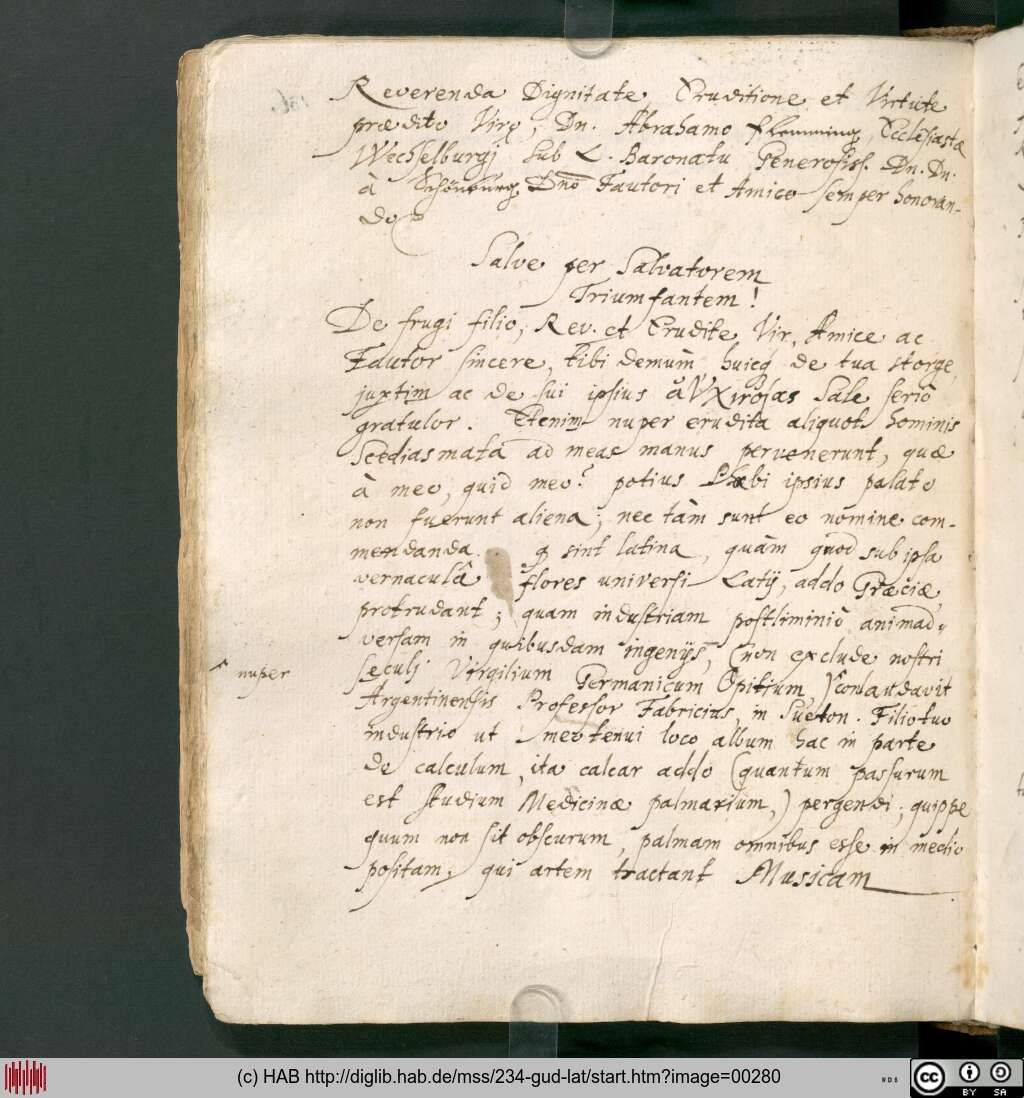 Reverenda Dignitate Eruditione et Virtute
prædito Viro, Dn. Abrahamo Flemming, Ecclesiastæ
Wechselburgj sub L. Baronatu Generosiss. Dn. Dn.
à Schönburg Dnō Fautori et Amico semper honoran-
do
Salve per Salvatorem
Triumfantem!
De frugi filio, Rev. et Erudite Vir, Amice ac
Fautor sincere, tibi demum huicq de tua storge,
juxtim ac de sui ipsius Sale seriò
gratulor. Etenim nuper erudita aliquot hominis
Scediasmata ad meas manus pervenerunt, quæ
à meo, quid meo? potius Phœbi ipsius palato
non fuerunt aliena; nec tàm sunt eo nomine com-
mendanda. q sint latina, quàm quod sub ipsa
vernaculâ flores universi Latij, addo Græciæ,
protrudant; quam industriam postliminiò animad-
versam in quibusdam ingenijs, (non exclude nostri
nuper
seculj Virgilium Germanicum Opitium,) conlaudavit
Argentinensis Professor Fabricius, in Sueton. Filio tuo
industrio ut meo tenui loco album hac in parte
de calculum, ita calcar addo (quantum passurum
est studium Medicinæ palmarium,) pergendi; quippe
quum non sit obscurum, palmam omnibus esse in medio
positam, qui artem tractant Musicam
(c) HAB http://diglib.hab.de/mss/234-gud-lat/start.htm?image=00280
cc BY SA